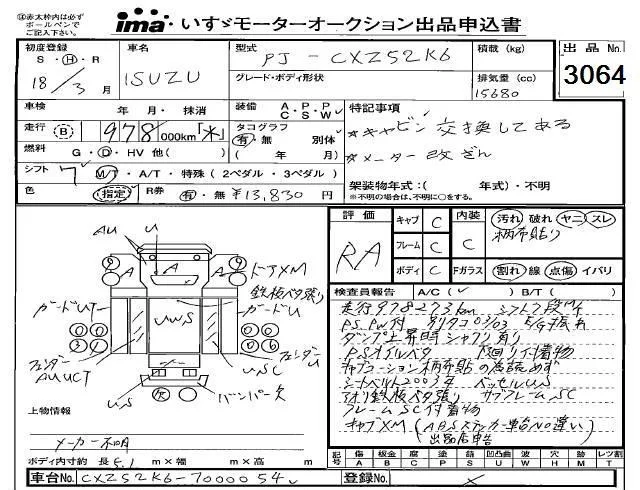 ※赤太枠内は必ず
ボールペンで
ご記入下さい。
ima・いすゞモーターオークション出品申込書
初度登録
S・H・R
18/3月
車名
ISUZU
型式
PJ-CXZ52K6
グレード・ボディ形状
積載(kg)
排気量(cc)
15680
出品No.
3064
車検 年・月・抹消
走行 B 978,000km「*」
燃料 G・D・HV 他( )
シフト 7 M/T・A/T・特殊(2ペダル・3ペダル)
色 (指定) R券 有・無 ¥13,830円
装備 A・P・P
C・S・W
タコグラフ
有・無 別体
( 年 月)
特記事項
*キャビン交換してある
*メーター改ざん
架装物年式:( 年式)・不明
※不明の場合は、不明に○をする。
評価 RA
キャブ C
フレーム C
ボディ C
内装 C
Fガラス
汚れ 破れ ヤニ スレ
柄布貼り
割れ 線 点傷 イバリ
検査員報告 A/C(✓) B/T( )
走行978273km シフト7段MT
PS,PW付
ダンプ上昇時シャクリ有り
PSオイルベタ 下回り付着物
キャブコーション柄布貼の為読めず
シートベルト2003年 ベッセルUS
アオリ鉄板ベタ張り サブフレームSC
フレームSC付着物
キャブXM(ABSステッカー車台No違い)
(出品店申告)
AU
U
A
A
ドアXM
鉄板ベタ張り
ガードU
ガードUT
UWS
フェンダー
AUUCT
フェンダーU
USC
US
バンパー欠
上物情報
メーカー不明
ボディ内寸約 長さ5.1 m×幅 m×高 m
記号
傷 A
板金 B
腐 C
塗 P
錆 S
凹凸曲 U
波 W
穴 H
跡 M
レツ割 T
車台No. CXZ52K6-7000054
登録No.